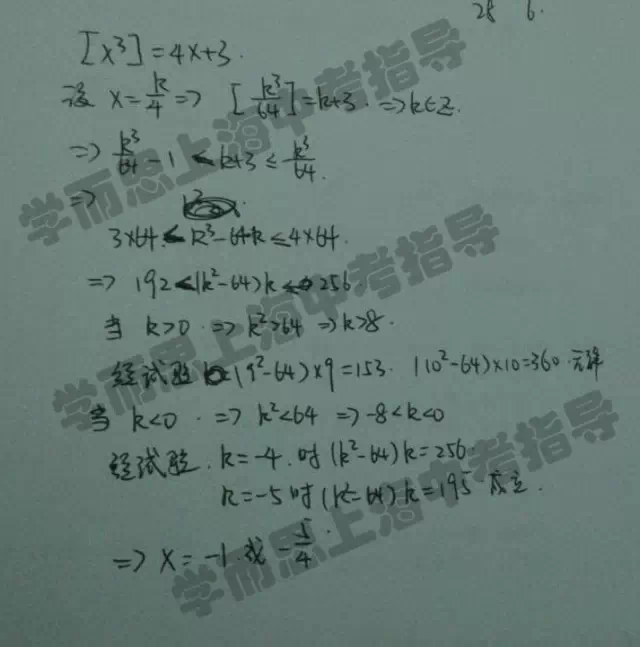 28 6.
[x³]=4x+3.
设 x=k/4 => [k³/64]=k+3. => k∈Z.
=> k³/64 -1 < k+3 ≤ k³/64.
=>
3×64 < k³-64k ≤ 4×64.
=> 192 < (k²-64)k ≤ 256.
当 k>0 => k²>64 => k>8.
经试验 (9²-64)×9=153. (10²-64)×10=360 无解
当 k<0 => k²<64 => -8<k<0
经试验. k=-4.时 (k²-64)k=256.
k=-5时 (k²-64)k=195 成立.
=> x=-1.或 -5/4.
学而思上海中考指导
学而思上海中考指导
学而思上海中考指导